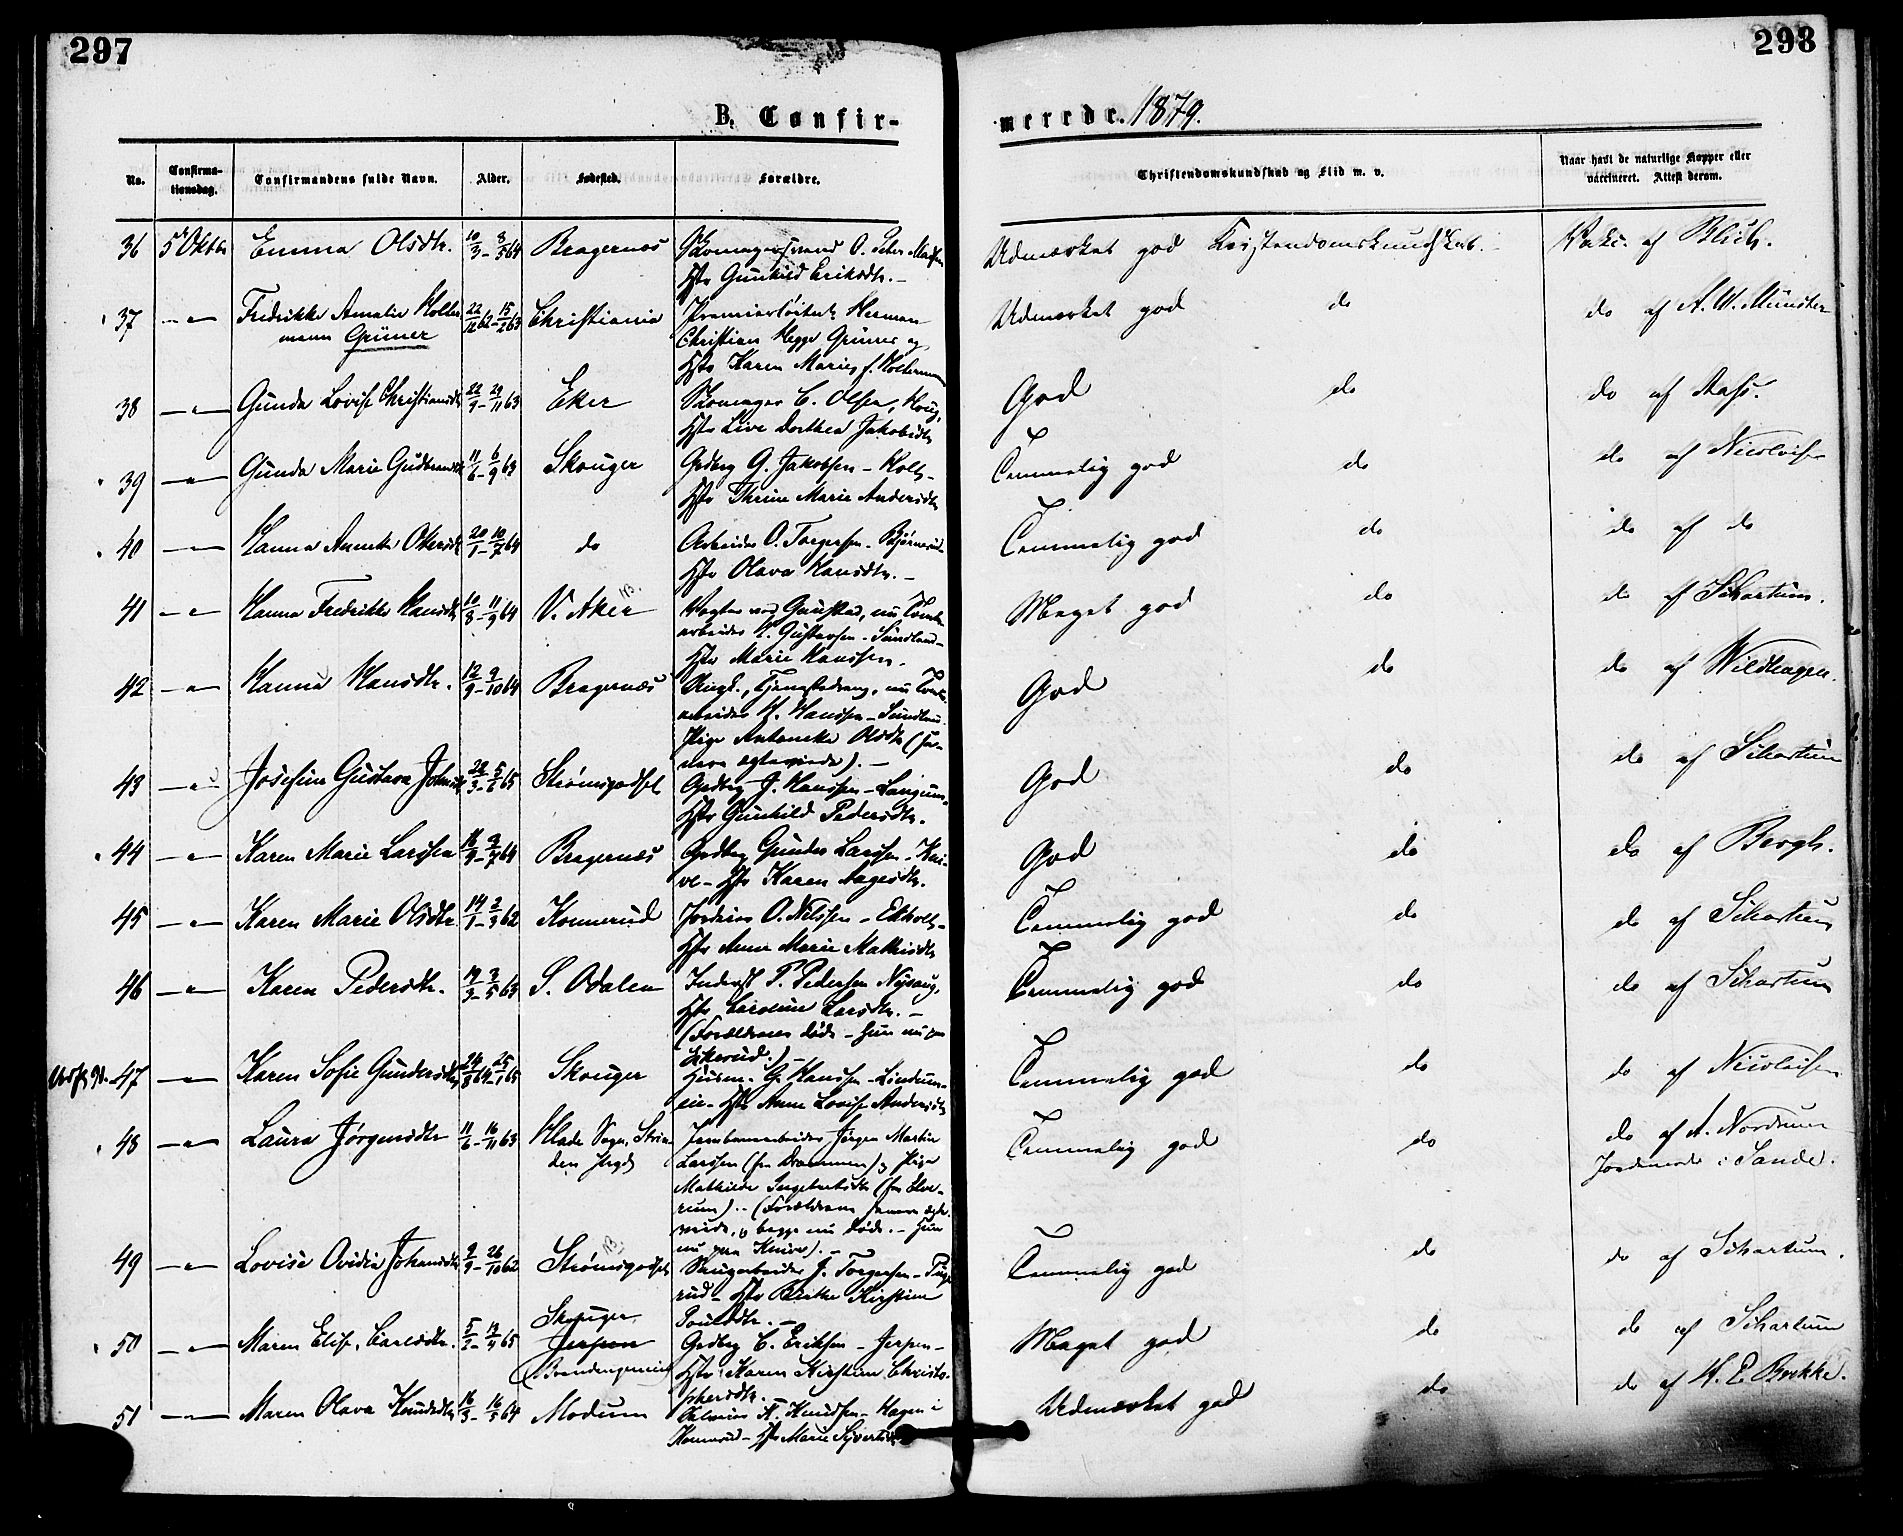 297
298
B. Confir-
merede. 1879.
No.
Confirma-
tionsdag.
Confirmandens fulde Navn.
Alder.
Fødested.
Forældre.
Christendomskundskab og Flid m. v.
Naar havt de naturlige Kopper eller
vaccineret. Attest derom.
36 5 Oktbr Emma Olsdtr. 10/3 - 8/5 64 Bragernæs
Hstr Gunhild Eriksdtr. -
Udmærket god Kristendomskundskab. Vakc. af Blich.
37 Fredrikke Amalie Holter
mann Grüner 22/12 62 - 15/2 63 Christiania Premierløitnt. Herman
Christian Hegge Grüner og
Hstr Karen Marie f. Holtermann
Udmærket god do do af A. W. Münster
38 Gunda Lovise Christiansdtr 22/9 - 29/11 63 Eker Skomager C. Olsen, Houg,
Hstr Live Dorthea Jakobsdtr
God do do af Aass.
39 Gunda Marie Gudbrandsdtr 11/6 - 6/9 63 Skouger Grdbrg G. Jakobsen - Holt -
Hstr Thrine Marie Andersdtr
Temmelig god do do af Nicolaisen
40 20/1 - 10/7 64 do Arbeider O. Torgersen -
Hstr Olava Hansdtr. -
Temmelig god do do af do
41 Hanna Fredrikke Hansdtr 10/8 - 11/9 64 V. Aker
Vogter ved Gaustad, nu
arbeider H. Gustavsen - Sundland -
Hstr Marie Hanssen.
Meget god do do af Schartum.
42 Hanna Hansdtr. 12/9 - 9/10 64 Bragernæs
arbeider H. Hanssen - Sundland.
Pige Antonette Olsdtr
God do do af Wildhagen.
43 Josefine Gustava Johansdtr 5/6 65 Strømsgodset Grdbrg J. Hanssen -
Hstr Gunhild Pedersdtr.
God do do af Schartum
44 Karen Marie Larssen 9/7 64 Bragernæs Grdbrg Gunder Larssen - Kni-
ve - Hstr Karen Aagesdtr.
God do do af Bergh.
45 Karen Marie Olsdtr 14/1 - 2/3 62 Konnerud O. Nilssen - Ekholt -
Hstr Anne Marie Mathisdtr
Temmelig god do do af Schartum
46 Karen Pedersdtr. 14/3 - 3/5 63 S. Odalen Inderst P. Pedersen Nysaug,
Hstr Caroline Larsdtr. -
(Forældrene døde - hun nu paa
Ekerud.) -
Temmelig god do do af Schartum
47 Karen Sofie Gundersdtr 24/8 64 - 25/1 65 Skouger Husm. G. Hanssen - Lindrum-
eie - Hstr Anne Lovise Andersdtr
Temmelig god do do af Nicolaisen
48 Laura Jørgensdtr 11/6 - 16/11 63 Hlade Sogn, Strin-
den Prgd Jernbanearbeider Jørgen Martin
Larssen (fra Drammen) og Pige
Mathilde Ingebretsdtr (fra Elve-
rum). - (Forældrene senere ægte-
viede, og begge nu døde. - Hun
nu paa Knive). -
Temmelig god do do af A. Nordrum
Jordmoder i Sande.
49 Lovise Ovidia Johansdtr 9/9 - 26/10 62 Strømsgodset
Brugarbeider J. Torgersen -
rud - Hstr Berthe Kirstine
Poulsdtr. -
Temmelig god do do af Schartum.
50 Maren Elise Carlsdtr. 5/2 - 17/4 65 Skouger
Jerpen
Grdbrg C. Eriksen - Jerpen -
Hstr Karen Kirstine Christo-
phersdtr.
Meget god do do af Schartum
51 Maren Olava Knudsdtr 16/3 - 16/5 64 Modum K. Knudsen - Hagen i
Konnerud - Hstr Marie Syvertsdtr
Udmærket god do do af H. P. Bakke.